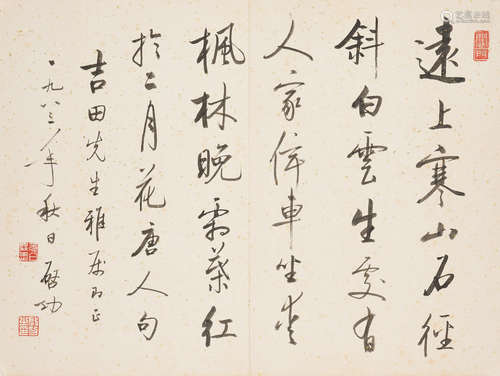 遠上寒山石徑
斜白雲生處有
人家停車坐愛
楓林晚霜葉紅
於二月花唐人句
吉田先生雅屬即正
一九八三年秋日啓功